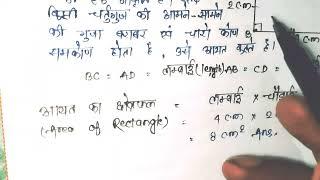 किसी चर्तुभुज की आमने-सामने
2cm
की भुजा बराबर एवं चारो कोण
समकोण होता है, उसे आयत कहते है।
BC = AD = लम्बाई (length) AB = CD =
आयत का क्षेत्रफल = लम्बाई × चौड़ाई
(Area of Rectangle) = 4 cm × 2
= 8 cm² Ans.